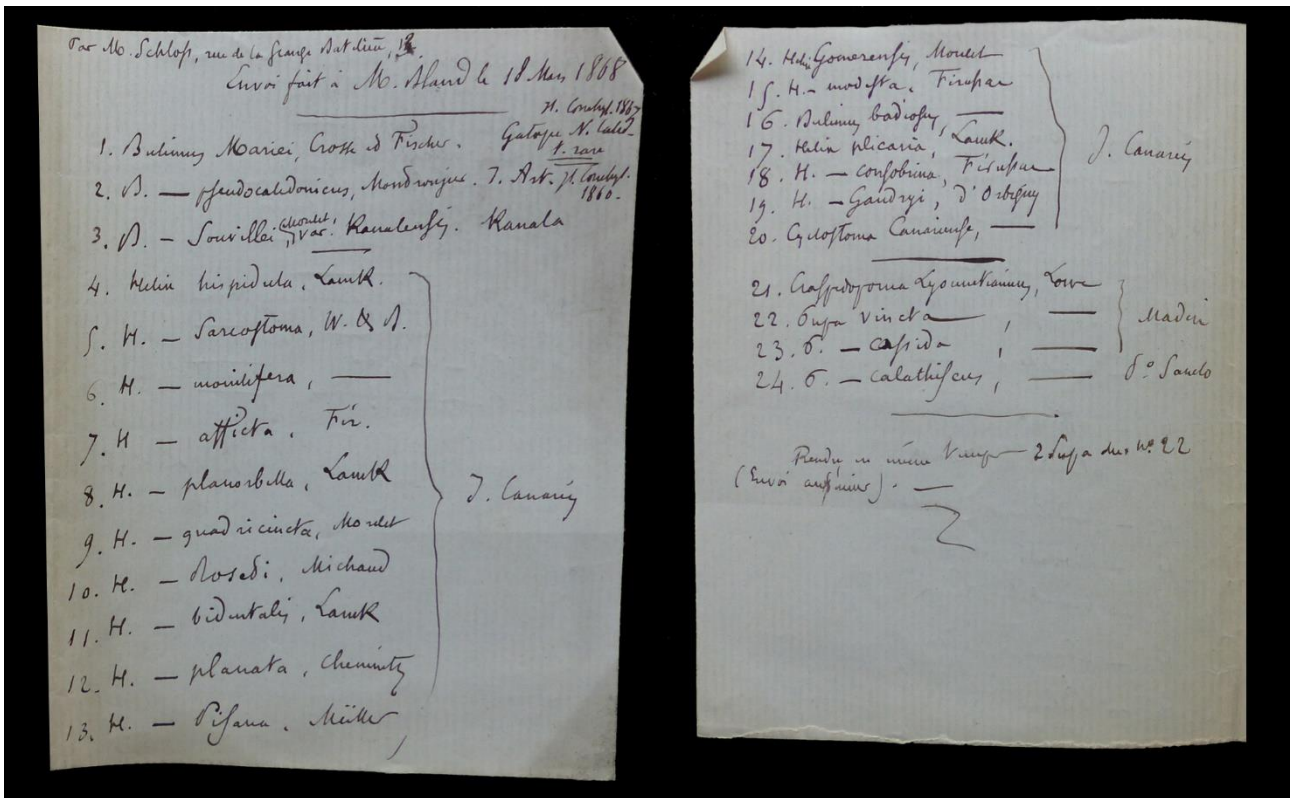 Par M. Schloss, rue de la Grange Batelière, 13.
Envoi fait à M. Bland le 18 Mars 1868
J. Conchyl. 1867
1. Bulimus Mariei, Crosse et Fischer. Gatope N. Caled.
t. rare
2. B. — pseudocaledonicus, Montrouzier. I. Art. J. Conchyl.
1860.
3. B. — Souvillei, Morelet, var. Kanalensis. Kanala
4. Helix hispidula, Lamk.
5. H. — Sarcostoma, W. & B.
6. H. — monilifera, —
7. H — afficta, Fér.
8. H. — planorbella, Lamk
9. H. — quadricincta, Morelet
10. H. — Roseti, Michaud
11. H. — bidentalis, Lamk
12. H. — planata, Chemnitz
13. H. — Pisana, Müller
I. Canaries
14. Helix Gomerensis, Morelet
15. H. — modesta, Férussac
16. Bulimus badiosus, —
17. Helix plicaria, Lamk.
18. H. — consobrina, Férussac
19. H. — Gaudryi, d'Orbigny
20. Cyclostoma Canariense, —
I. Canaries
21. Craspedopoma Lyonnetianum, Lowe
22. Pupa vincta, —
23. P. — cassida, —
Madère
24. P. — calathiscus, — Po. Santo
Rendu en même temps — 2 Pupa du no. 22
(Envoi antérieur). —